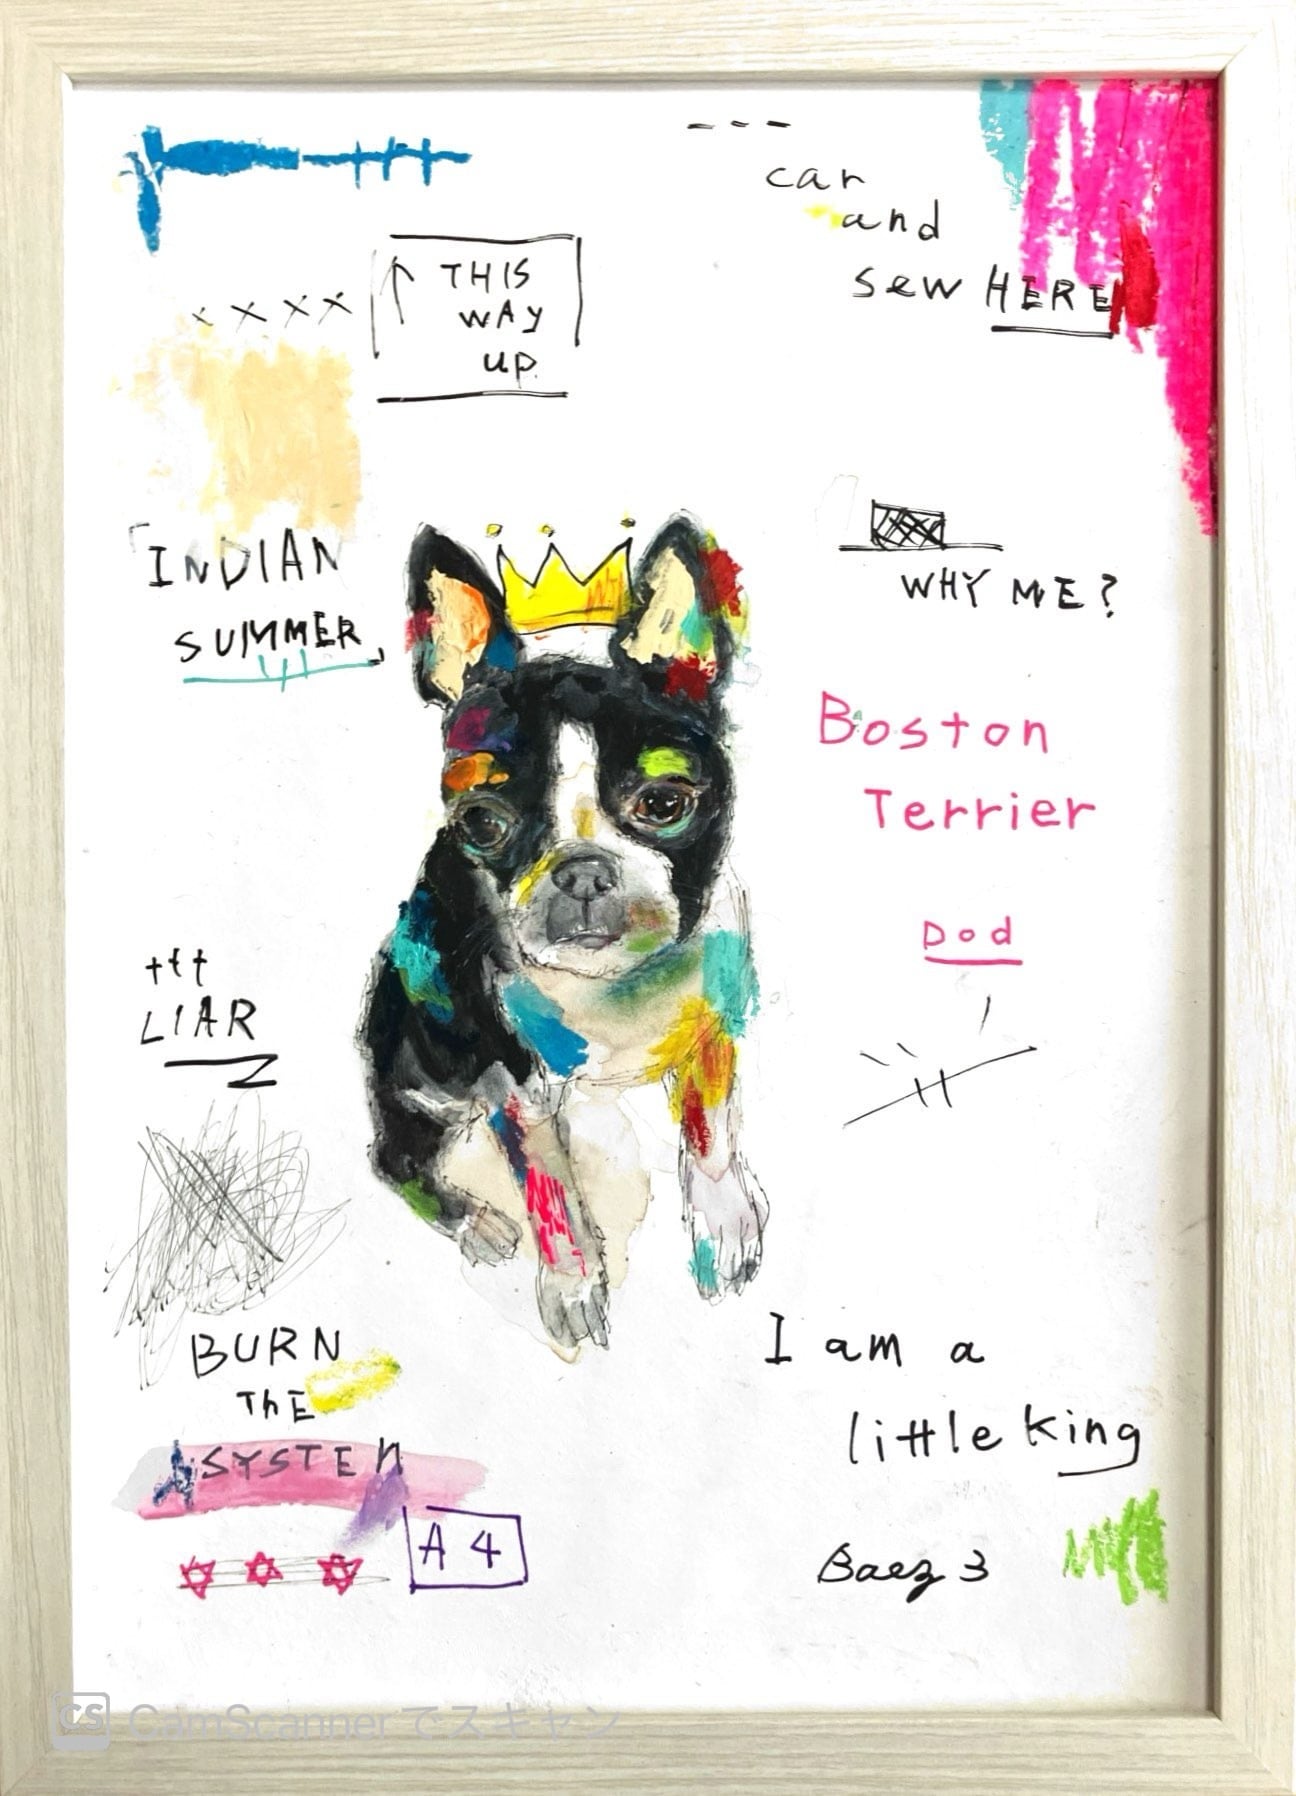 ---
can
and
sew HERE
↑ THIS
WAY
up.
××××
「INDIAN
SUMMER」
WHY ME?
Boston
Terrier
Dod
LIAR
BURN
ThE
SYSTEM
A4
I am a
little king
Baez 3
CS CamScannerでスキャン